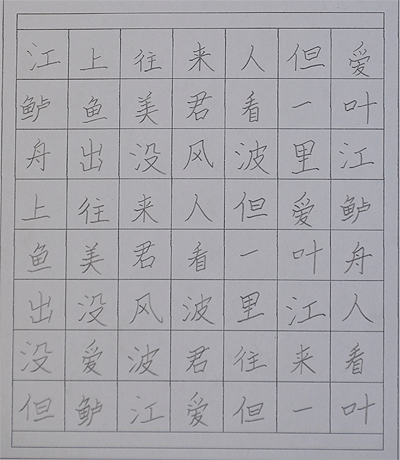 江上往来人但爱
鲈鱼美君看一叶
舟出没风波里江
上往来人但爱鲈
鱼美君看一叶舟
出没风波里江人
没爱波君往来看
但鲈江爱但一叶